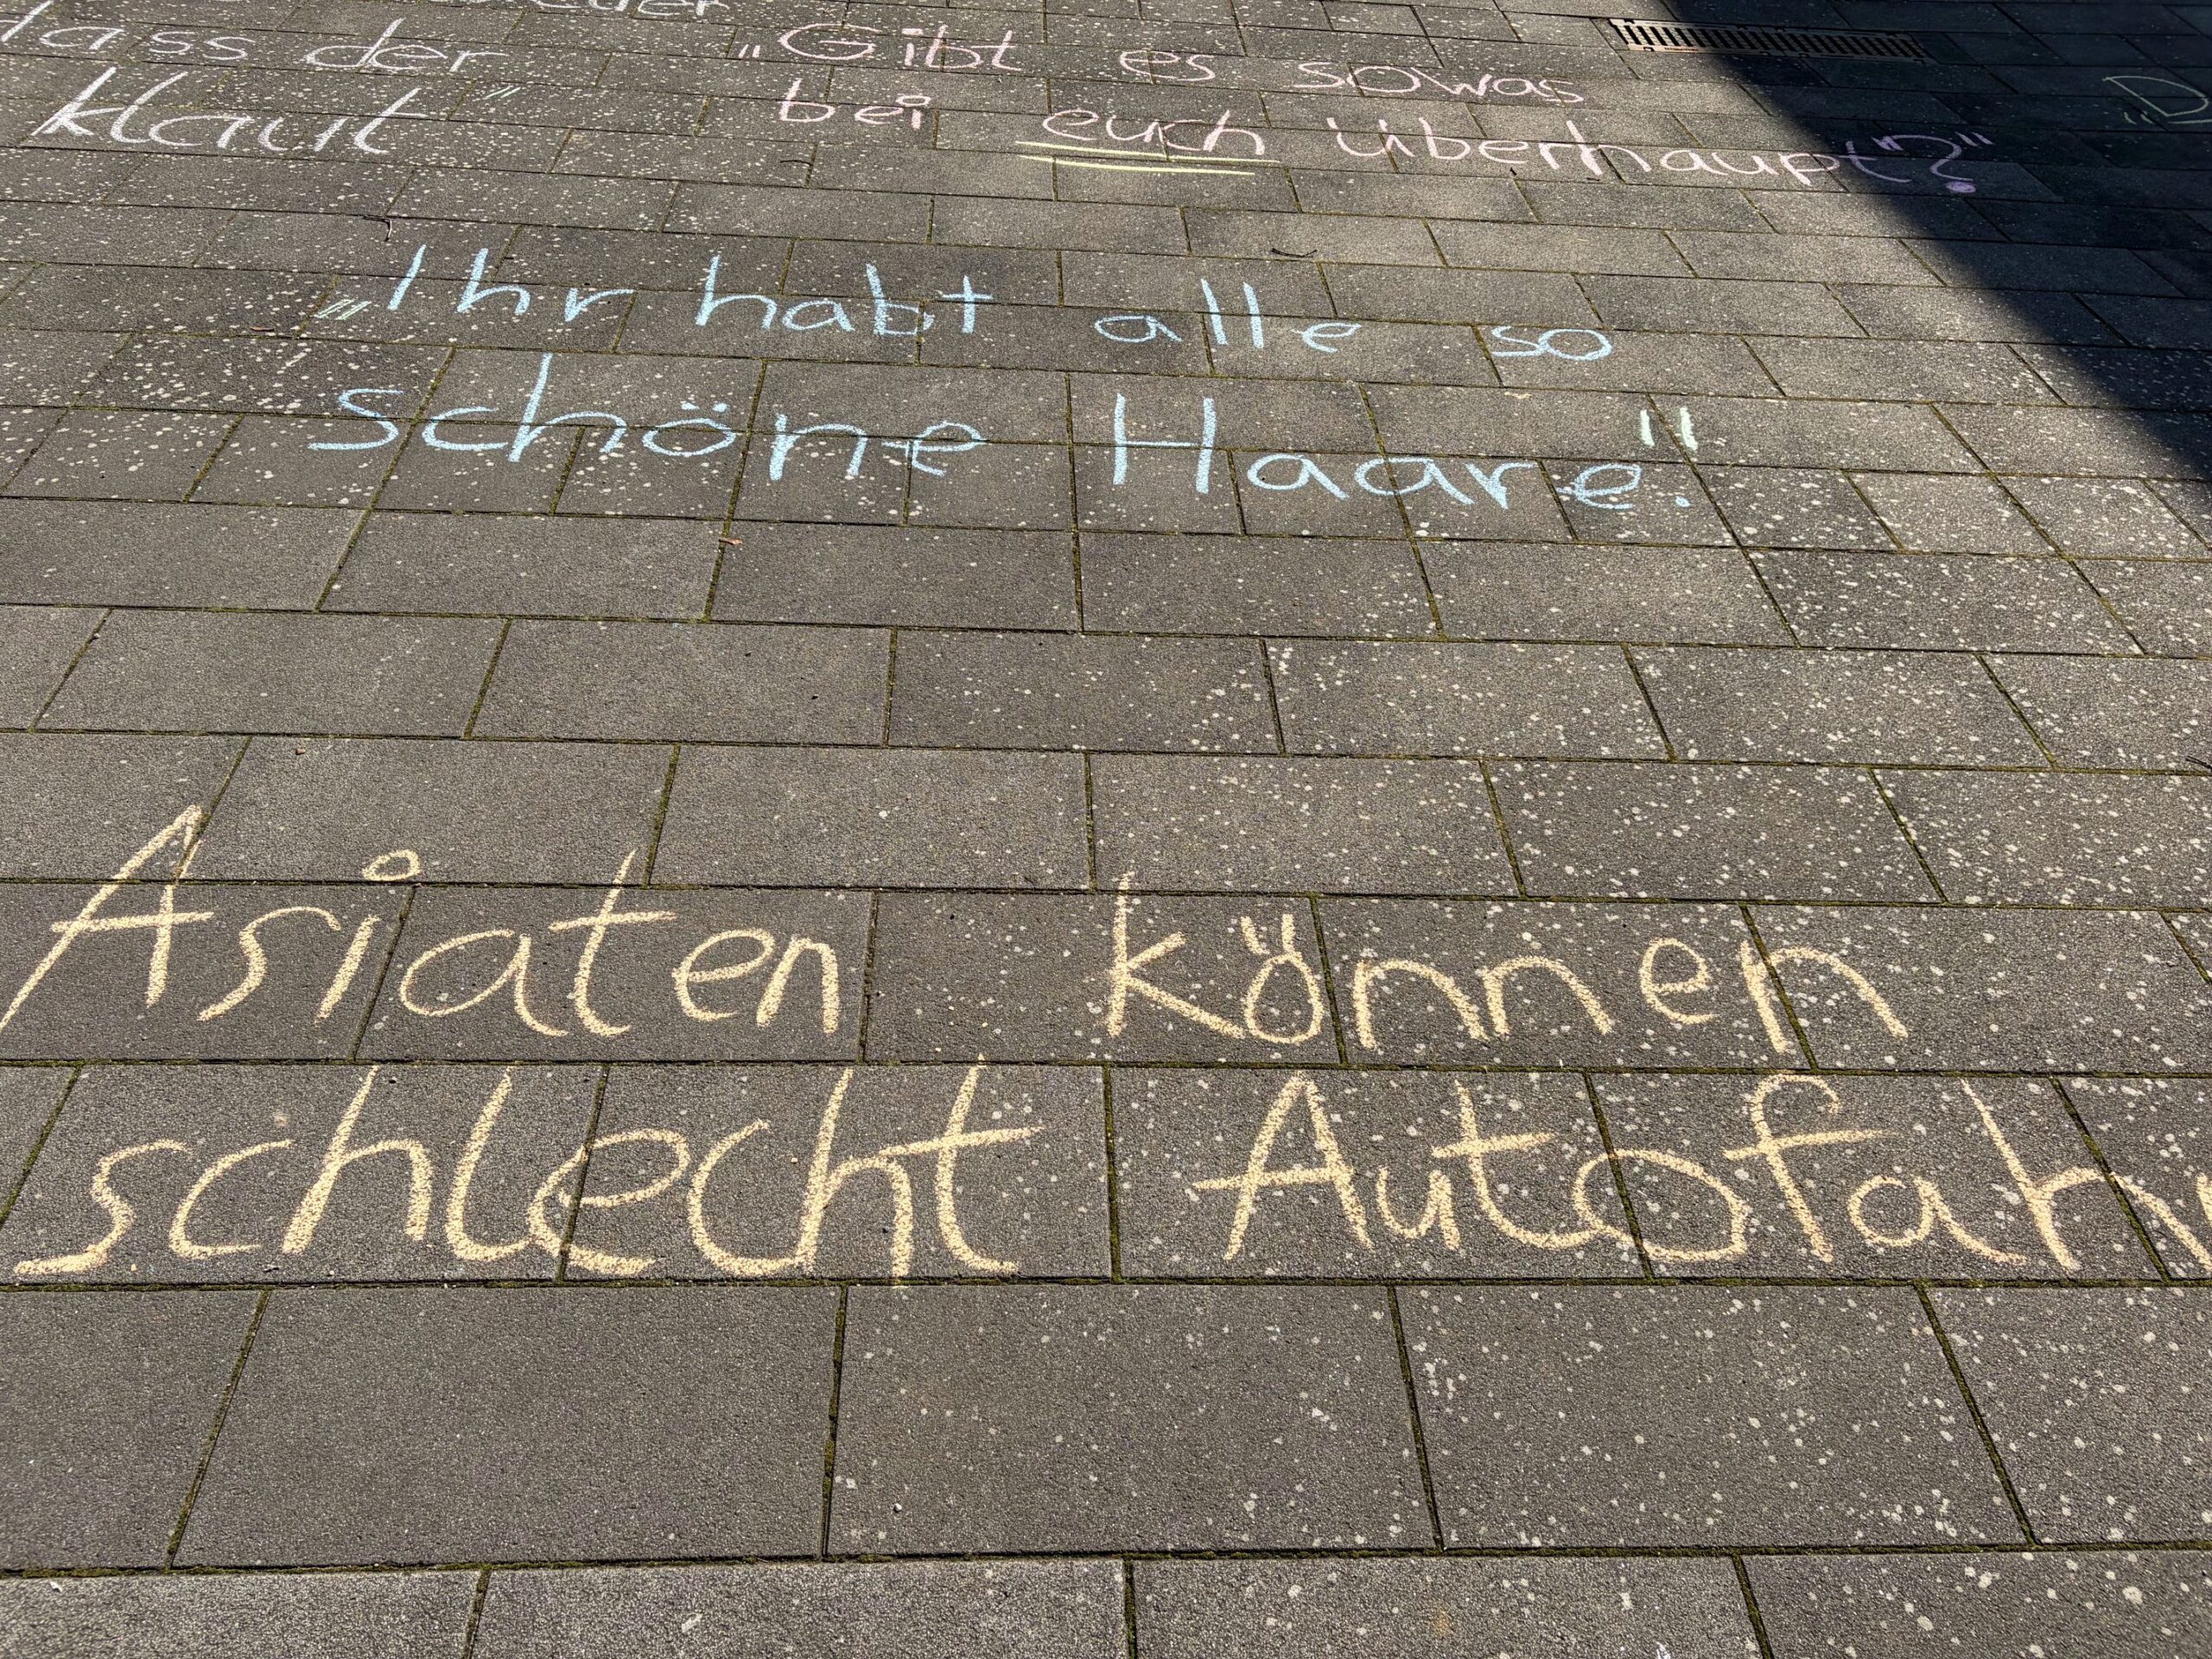 dass der
klaut"
„Gibt es sowas
bei euch überhaupt?"
„Ihr habt alle so
schöne Haare."
Asiaten können
schlecht Autofahr